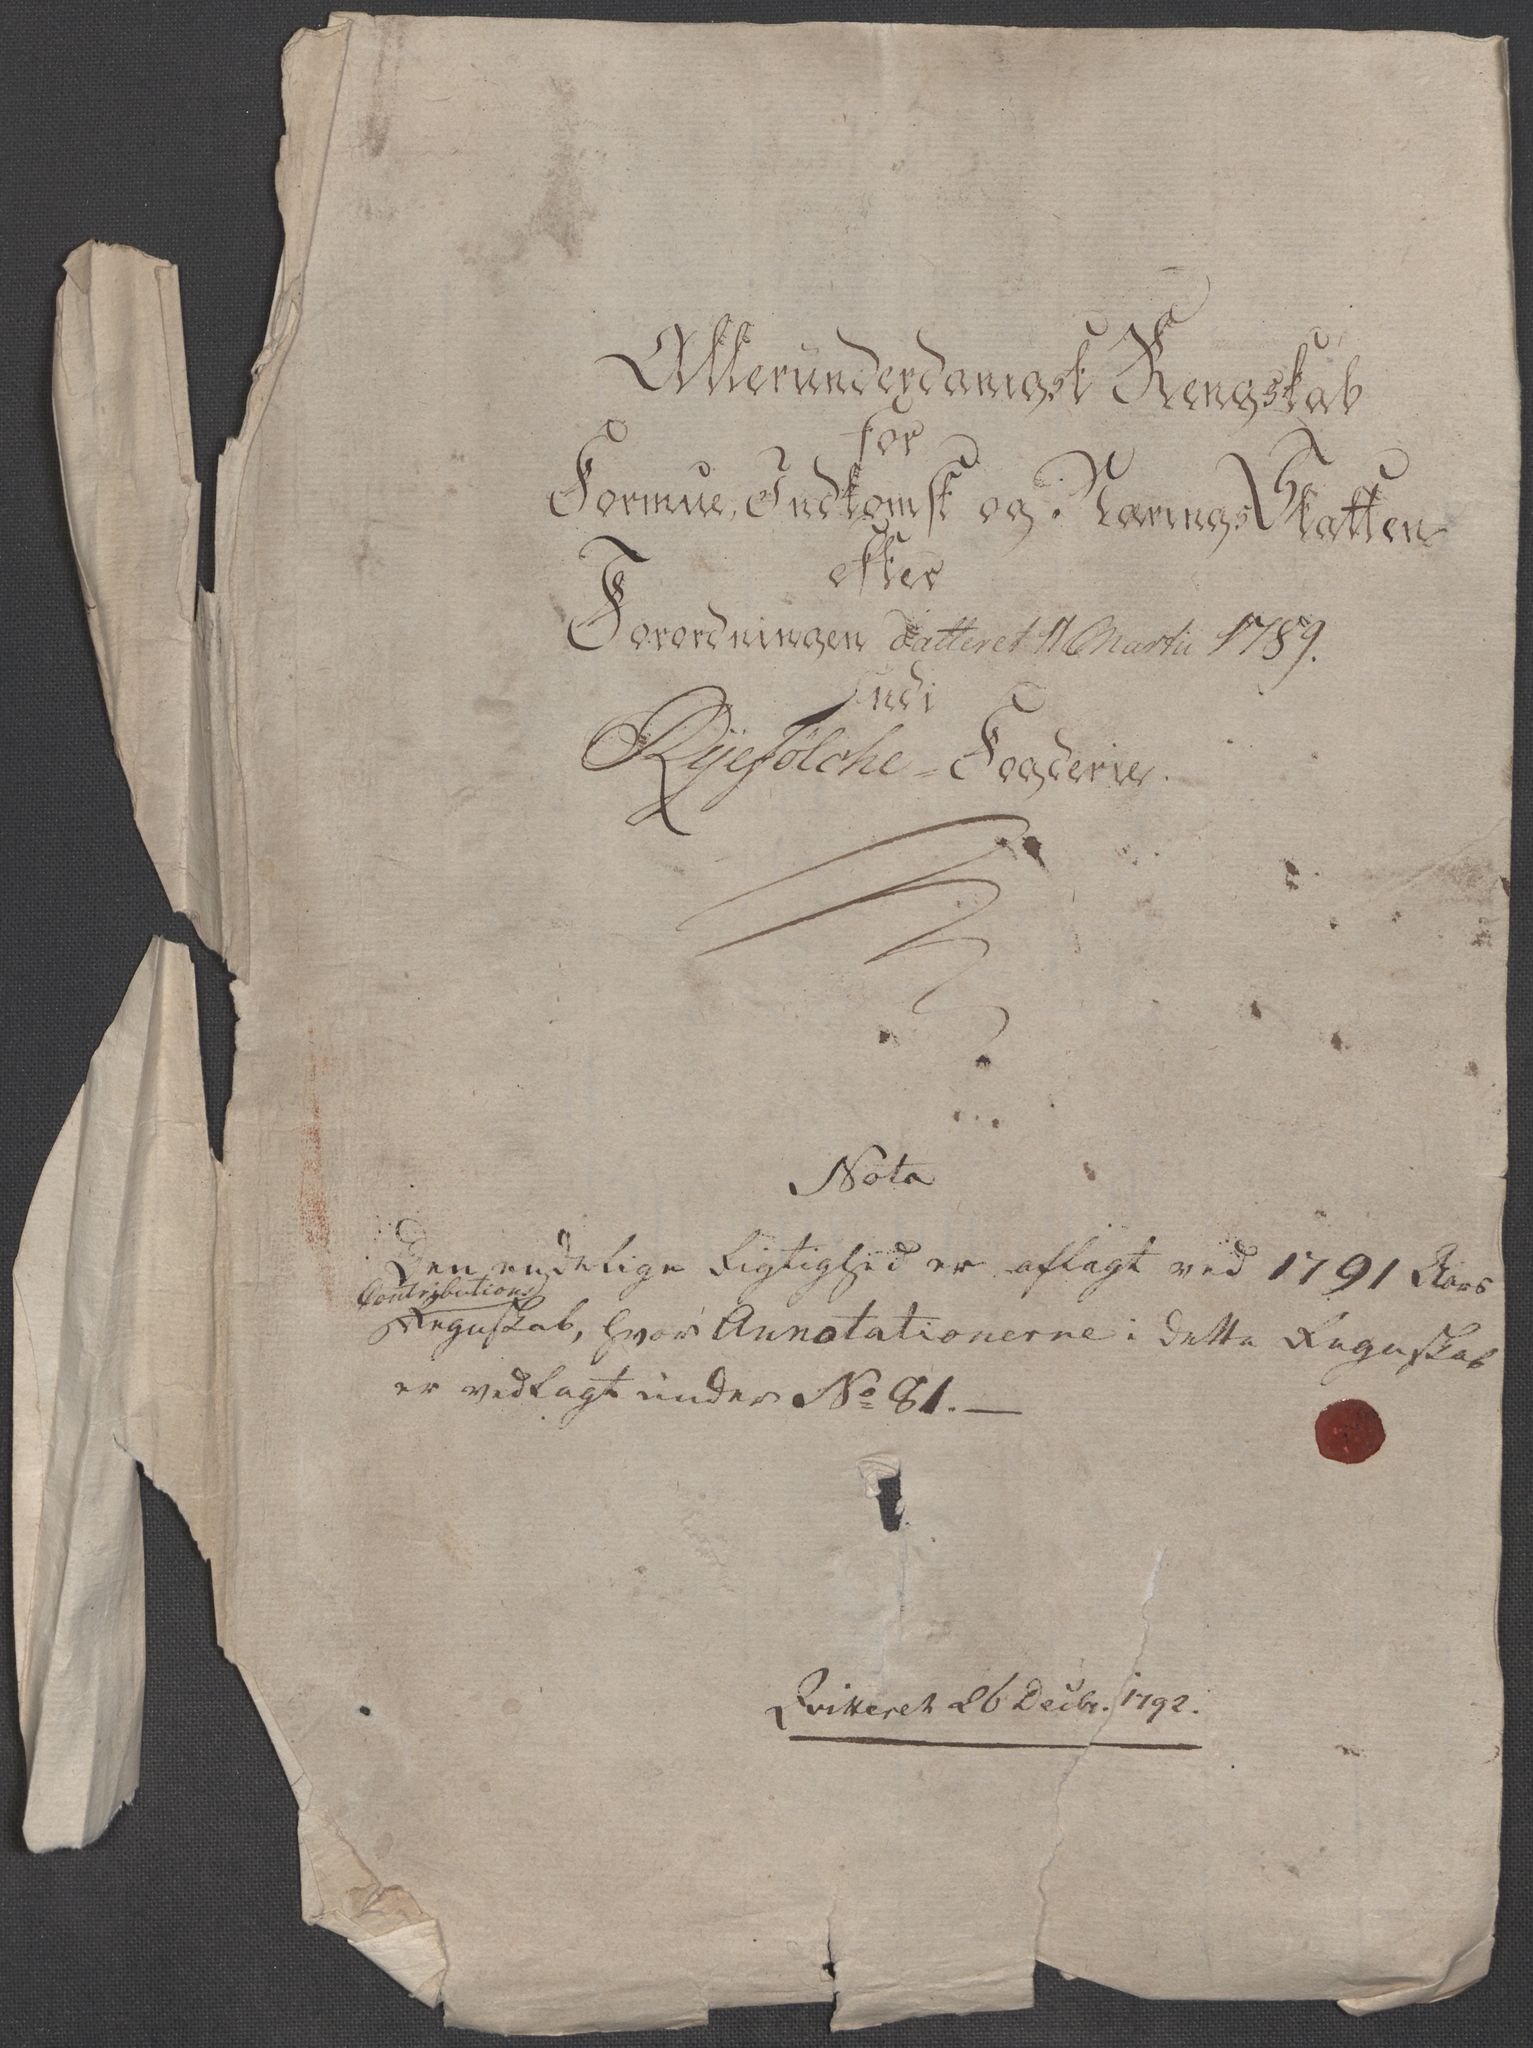 Allerunderdanigst Rengskab
for
Formue, Indkomst og Nærings Skatten
efter
Forordningen datteret 11 Martii 1789.
Indi
Ryefölche - Fogderie.
Nota
Den endelige Rigtighed er aflagt ved 1791 Aars
Contributions
Regnskab, hvor Annotationerne i dette Regnskab
er vedlagt under No 81. —
Qvitteret 26 Decbr. 1792.